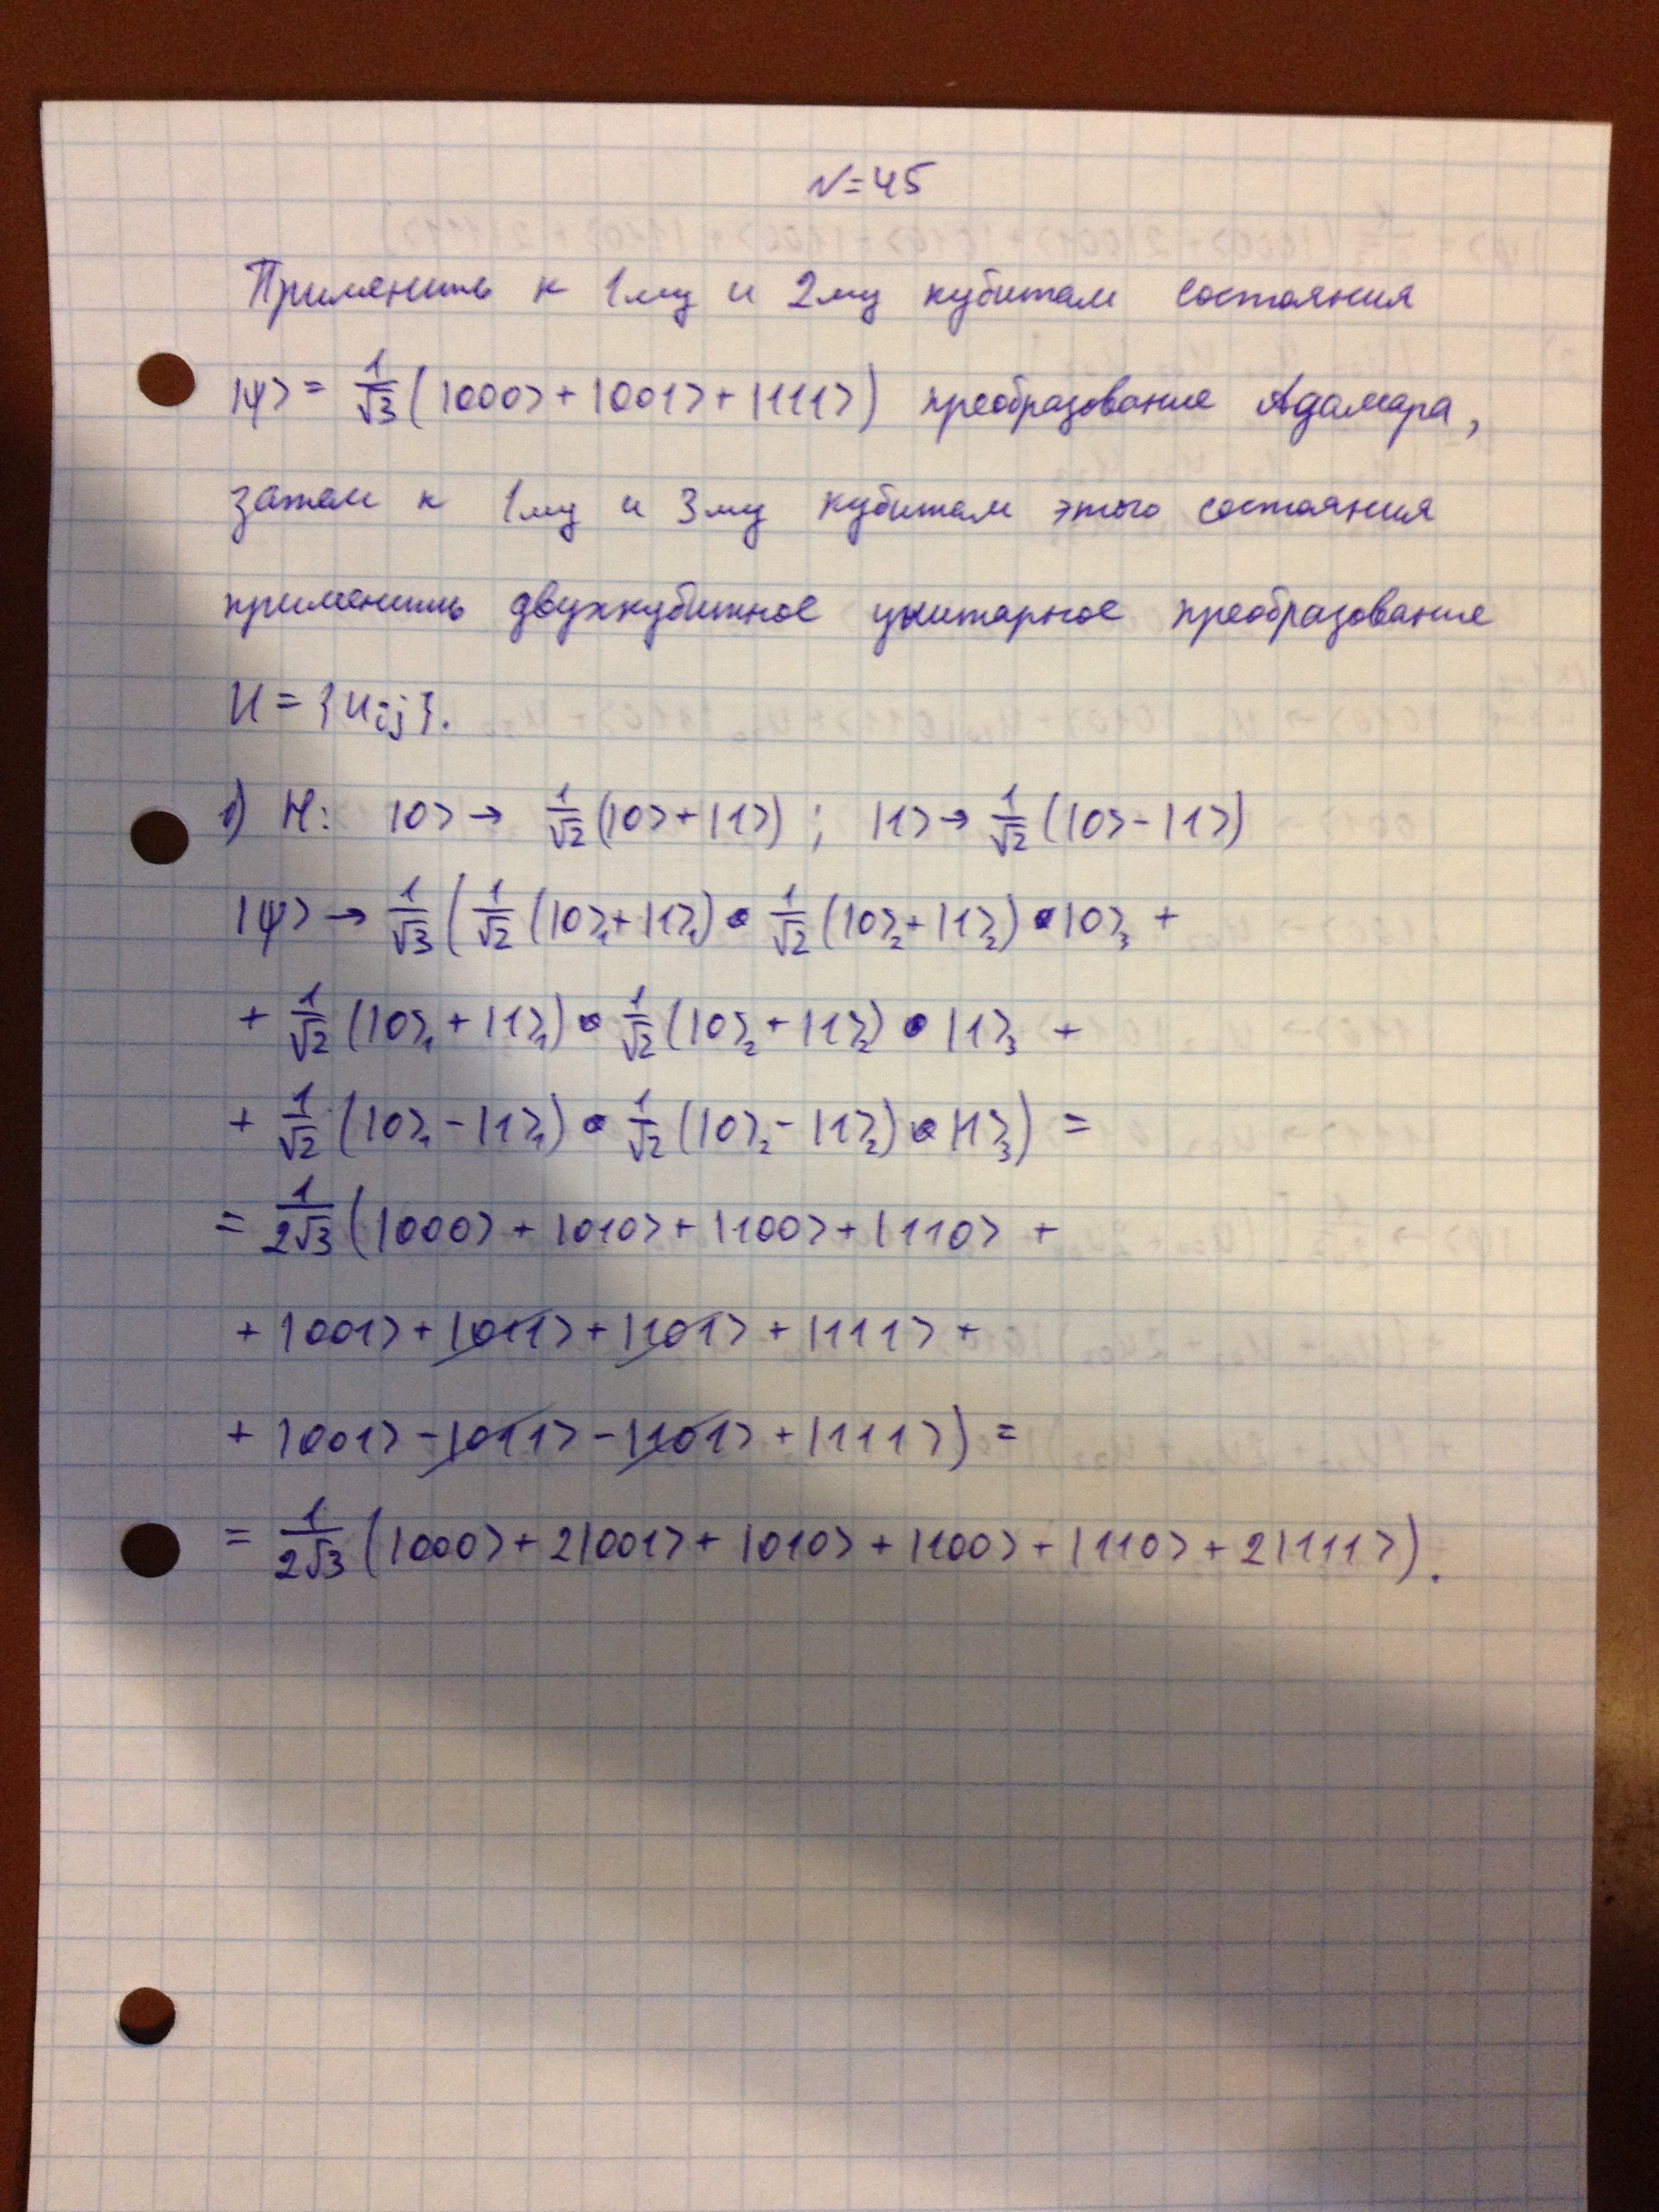 N=45
Применить к 1му и 2му кубитам состояния
|ψ> = 1/√3 (|000> + |001> + |111>) преобразование Адамара,
затем к 1му и 3му кубитам этого состояния
применить двухкубитное унитарное преобразование
U = {u_ij}.
1) H: |0> → 1/√2 (|0> + |1>) ; |1> → 1/√2 (|0> - |1>)
|ψ> → 1/√3 (1/√2 (|0>₁ + |1>₁) • 1/√2 (|0>₂ + |1>₂) • |0>₃ +
+ 1/√2 (|0>₁ + |1>₁) • 1/√2 (|0>₂ + |1>₂) • |1>₃ +
+ 1/√2 (|0>₁ - |1>₁) • 1/√2 (|0>₂ - |1>₂) • |1>₃) =
= 1/2√3 (|000> + |010> + |100> + |110> +
+ |001> + |011> + |101> + |111> +
+ |001> - |011> - |101> + |111>) =
= 1/2√3 (|000> + 2|001> + |010> + |100> + |110> + 2|111>).